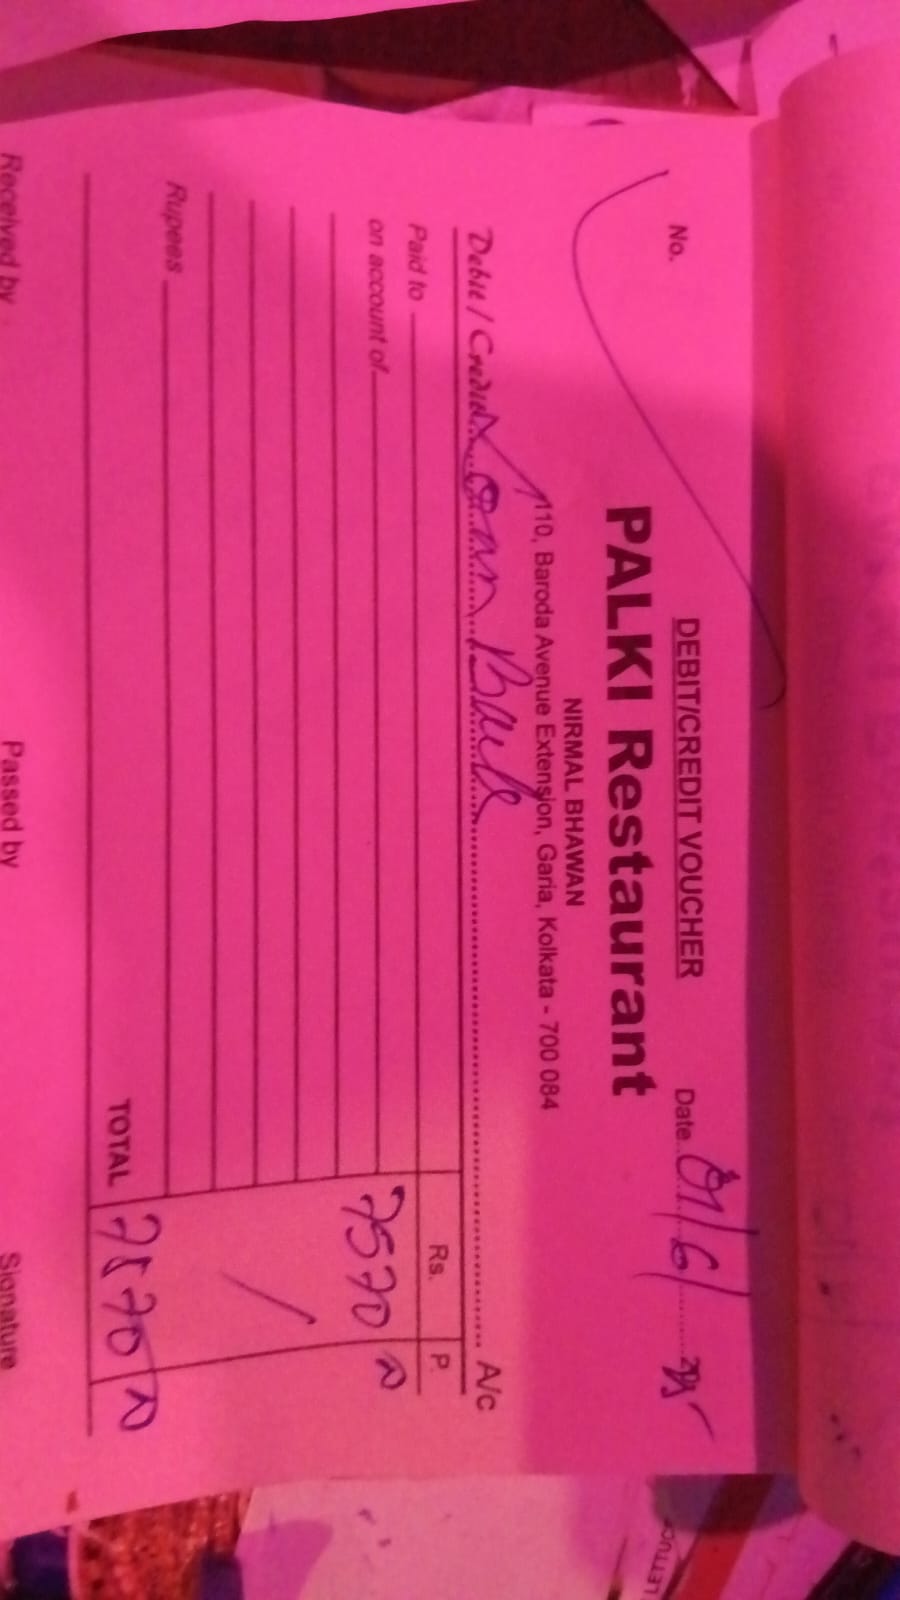 DEBIT/CREDIT VOUCHER
No. Date 01/6/
PALKI Restaurant
NIRMAL BHAWAN
110, Baroda Avenue Extension, Garia, Kolkata - 700 084
Debit / Credit Loan Back A/c
Paid to Rs. P.
on account of 7570
Rupees
TOTAL 7570
Received by Passed by Signature